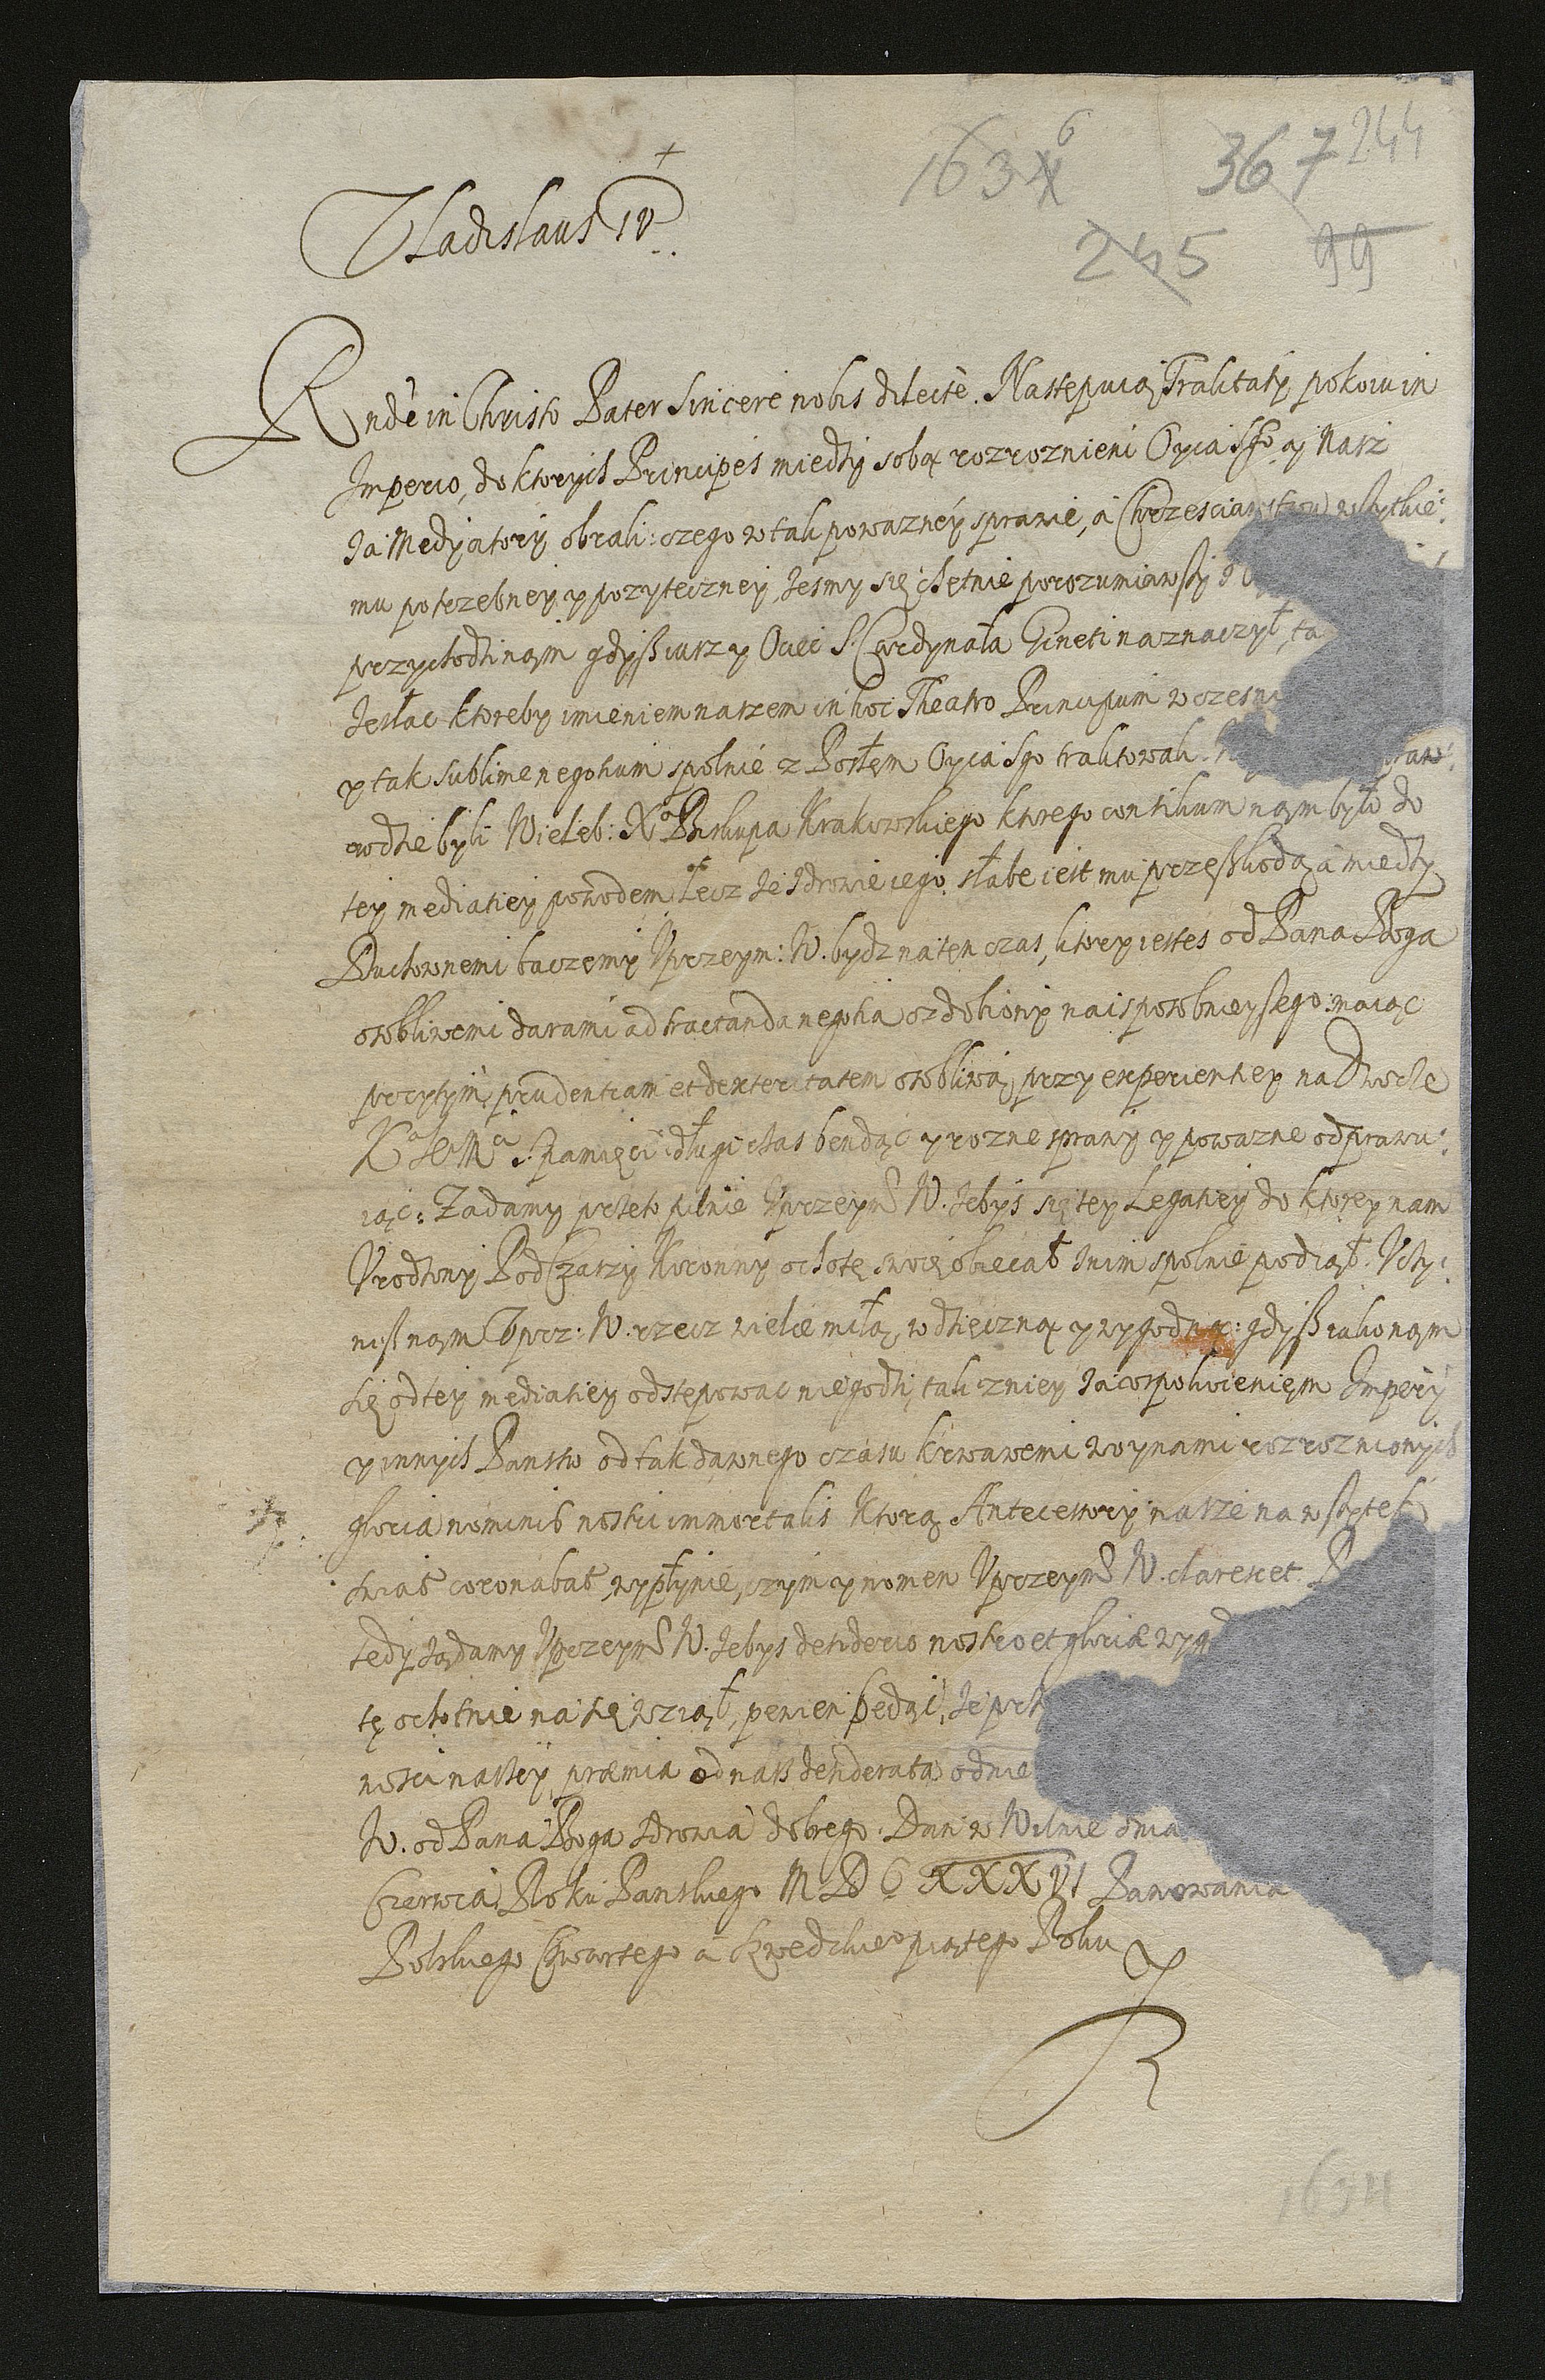 1634 6 367 244
245 99
Vladislaus IV
Rnde in Christo Pater Sincere nobis dilecte. Nastepuią Traktaty pokoiu in
Imperio, do ktorych Principes miedzy sobą rozroznieni Oyca Sgo ay nasz
za Mediatory obrali: czego w tak powazney sprawie, a Chrzescianstwu wszytkie:
mu potrzebney y pozyteczney, zesmy się chętnie porozumiawszy
przychodzi nąm gdysz iusz y Ociec S. Cardynała Gineti naznaczył, ta
zesłac ktoreby imieniem naszem in hoc Theatro Principum wczesni
y tak sublime negotium spolnie z Posłem Oyca Sgo traktowali.
wdzie byli Wieleb: Xa Biskupa Krakowskiego ktorego consilium nąm było do
tey mediatiey powodem Lecz ze zdrowie iego słabe iest mu przeszkodą a miedzy
Duchownemi baczemy Vprzeym: W. bydz na tęn czas, ktory iestes od Pana Boga
osobliwemi darami ad tractanda negotia ozdobiony naisposobnieyszego: maiąc
przytym, prudentiam et dexteritatem osobliwą, przy experientiey na Dworze
Ka Je Mci S. pamięci długi czas bendąc y rozne sprawy y powazne odprawu:
iąc: Ządamy przeto pilnie Vprzeym W. zebys się tey Legatiey do ktorey nam
Vrodzony PodCzaszy Koronny ochotę swoię obiecał znim spolnie podiął. Vczy:
nisz nąm Vprz: W. rzecz wielce miłą, wdzięczną y wygodną: gdysz iako nąm
się od tey mediatiey odstępowac nie godzi, tak z niey za uspokoieniem Impery
y innych Panstw od tak dawnego czasu krwawemi woynami rozroznionych
gloria nominis nostri immortalis Ktorą Antecessory nasze na wszytek
swiat coronabat wypłynie, czym y nomen Vprzeym W. clarescet.
tedy ządamy Vprzeym W. zebys desiderio nostro et gloriæ
tę ochotnie na się wziął, pewien będąc, ze
nosci naszey præmia od nass desiderata odnie
W. od Pana Boga zdrowia dobrego. Dan w Wilnie dnia
Czerwca Roku Panskiego MDCXXXVI Panowania
Polskiego Czwartego a Szwedzkiego piątego Roku
R
1634